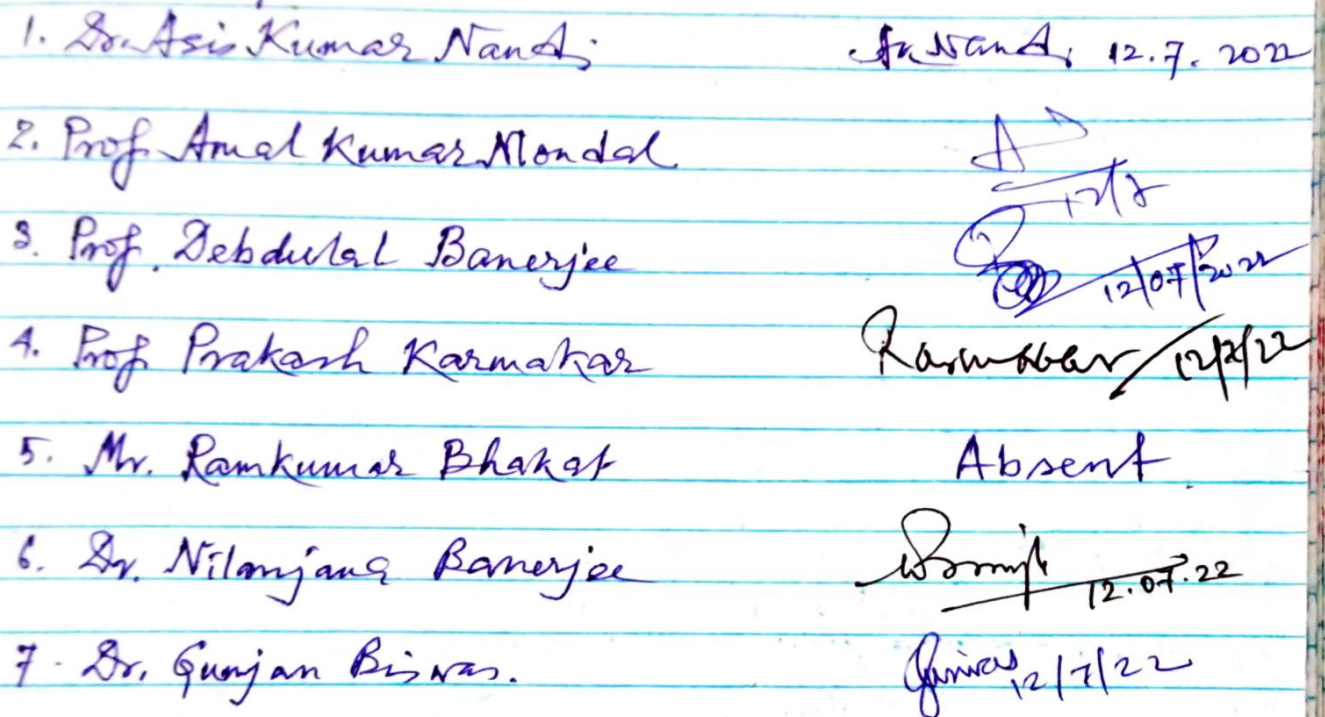 1. Dr. Asis Kumar Nandi A. Nandi 12.7.2022
2. Prof. Amal Kumar Mondal 12/7
3. Prof. Debdulal Banerjee 12/07/2022
4. Prof Prakash Karmakar Karmakar 12/7/22
5. Mr. Ramkumar Bhakat Absent
6. Dr. Nilanjana Banerjee 12.07.22
7. Dr. Gunjan Biswas. 12/7/22